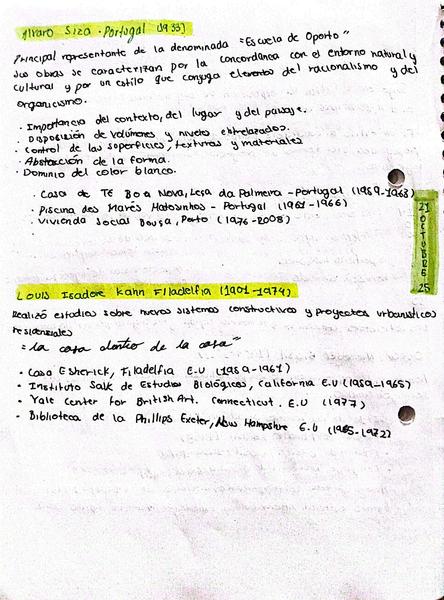 Alvaro Siza - Portugal (1933)
Principal representante de la denominada "Escuela de Oporto"
sus obras se caracterizan por la concordancia con el entorno natural y
cultural y por un estilo que conjuga elementos del racionalismo y del
organicismo.
· Importancia del contexto, del lugar y del paisaje.
· Disposición de volúmenes y niveles entrelazados.
· Control de las superficies, texturas y materiales
· Abstracción de la forma.
· Dominio del color blanco.
· Casa de Té Boa Nova, Lesa da Palmera - Portugal (1959-1963)
· Piscina des Marés Matosinhos - Portugal (1961-1966)
· Vivienda Social Bouça, Porto (1976-2008)
21
OCTUBRE
25
Louis Isadore Kahn Filadelfia (1901-1974)
Realizó estudios sobre nuevos sistemas constructivos y proyectos urbanísticos
residenciales
"la casa dentro de la casa"
· Casa Esherick, Filadelfia E.U (1959-1961)
· Instituto Salk de Estudios Biológicos, California E.U (1959-1965)
· Yale Center for British Art. Connecticut. E.U (1977)
· Biblioteca de la Phillips Exeter, New Hampshire E.U (1965-1972)